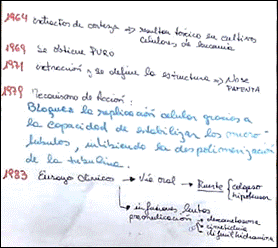 1964 extractos de corteza → resultar tóxico en cultivos
celulares de leucemia
1969 Se obtiene PURO
1971 extracción y se define la estructura → NO SE
PATENTA
1979 Mecanismo de Acción:
Bloquea la replicación celular gracias a
la capacidad de estabilizar los micro-
túbulos, inhibiendo la despolimerización
de la tubulina.
1983 Ensayos Clínicos → Vía oral → Muerte colapso
hipotensor
→ infusiones lentas
premedicación → dexametasona
cimetidina
difenhidramina